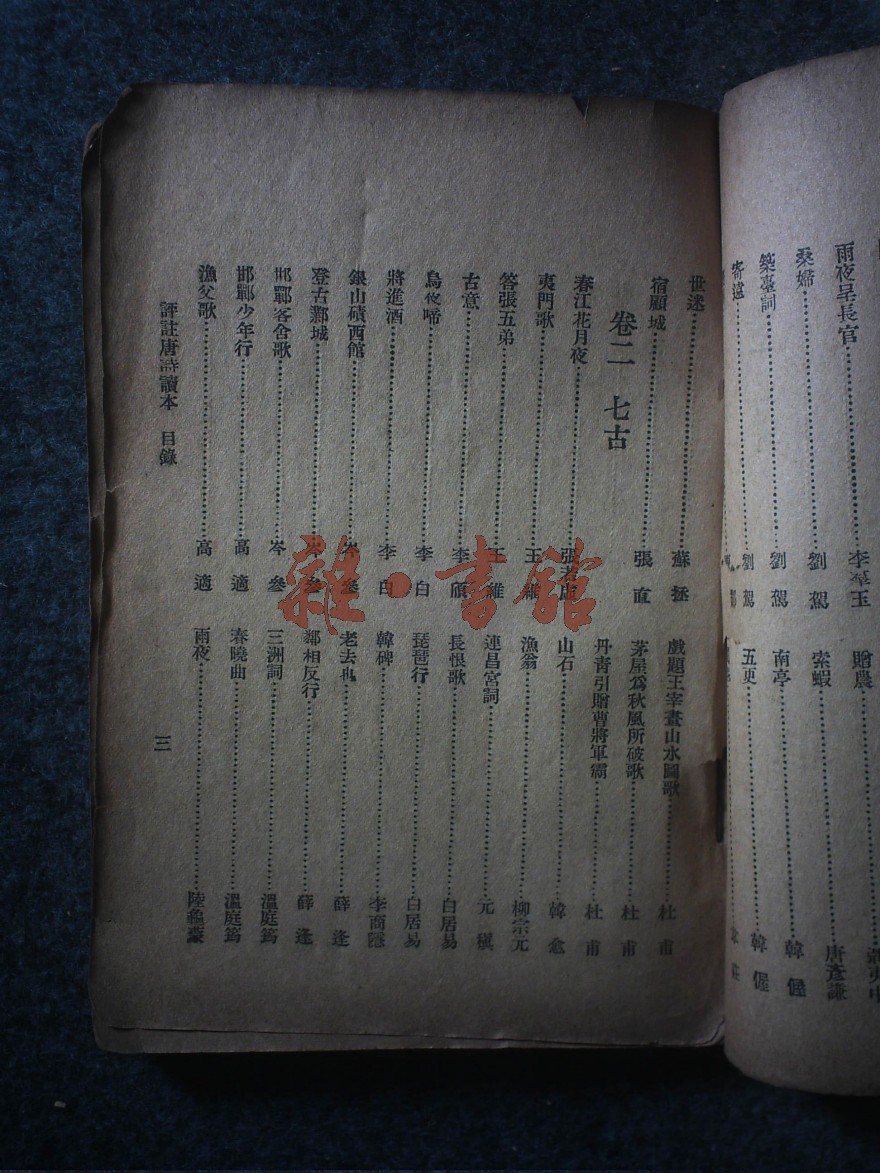 雨夜呈長官……李羣玉
桑婦……劉駕
築臺詞……劉駕
寄遠……劉駕
贈農……
索蝦……唐彥謙
南亭……韓偓
五更……韓偓
世迷……蘇拯
宿顧城……張直
卷二 七古
春江花月夜……張若虛
夷門歌……王維
答張五弟……王維
古意……李頎
烏夜啼……李白
將進酒……李白
銀山磧西館……岑參
登古鄴城……岑參
邯鄲客舍歌……岑參
邯鄲少年行……高適
漁父歌……高適
戲題王宰畫山水圖歌……杜甫
茅屋爲秋風所破歌……杜甫
丹青引贈曹將軍霸……杜甫
山石……韓愈
漁翁……柳宗元
連昌宮詞……元稹
長恨歌……白居易
琵琶行……白居易
韓碑……李商隱
老去也……薛逢
鄰相反行……薛逢
三洲詞……溫庭筠
春曉曲……溫庭筠
雨夜……陸龜蒙
評註唐詩讀本 目錄
三
雜·書館